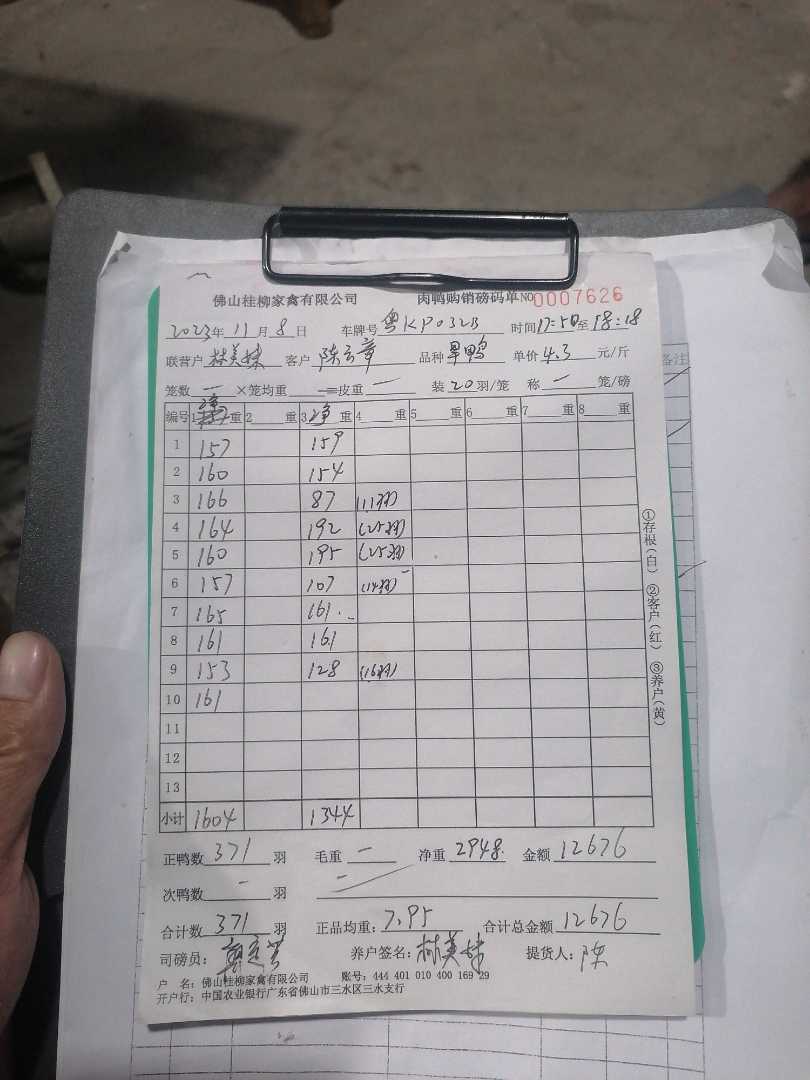 佛山桂柳家禽有限公司 肉鸭购销磅码单NO0007626
2023年11月8日 车牌号 粤KP032B 时间17:50至18:18
联营户 林美妹 客户 陈云章 品种 旱鸭 单价4.3元/斤
笼数 一 ×笼均重 一=皮重 一 装20羽/笼 称 一 笼/磅
编号 1净重 2 重 3净重 4 重 5 重 6 重 7 重 8 重
1 157 159
2 160 154
3 166 87 (11羽)
4 164 192 (25羽)
5 160 195 (25羽)
6 157 107 (14羽)
7 165 161
8 161 161
9 153 128 (16羽)
10 161
11
12
13
小计 1604 1344
正鸭数 371 羽 毛重 一 净重 2948 金额 12676
次鸭数 一 羽 一
合计数 371 羽 正品均重:7.95 合计总金额 12676
司磅员: 养户签名:林美妹 提货人:陈
户 名:佛山桂柳家禽有限公司 账号:444 401 010 400 169 29
开户行:中国农业银行广东省佛山市三水区三水支行
①存根(白) ②客户(红) ③养户(黄)
备注